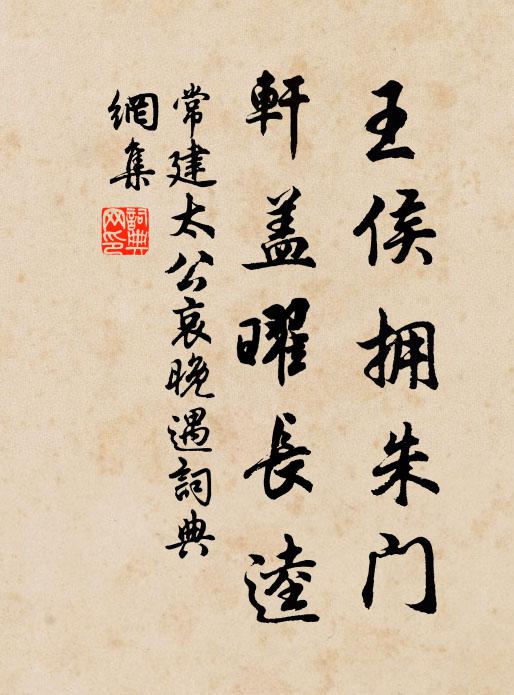 王侯拥朱门
軒盖曜長逵
常建太公哀晚遇詞典
網集
詞典網印